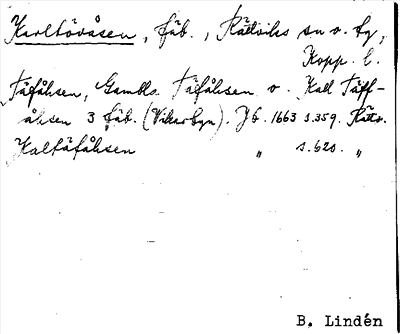 Karltövåsen, fäb., Rättviks sn o. tg,
Kopp. l.
Täfåhsen, Gambla Täfåhsen o. Kall Täff-
åhsen 3 fäb. (Vikarbyn). Jb. 1663 s.359. Rättv.
Kaltäfåhsen " s.620. "
B. Lindén